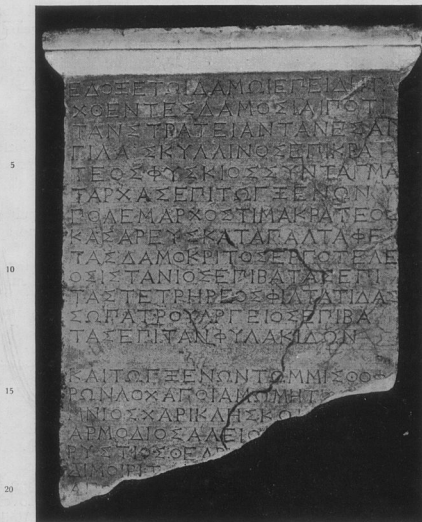 ΕΔΟΞΕΤΩΙΔΑΜΩΙΕΠΕΙΔΗ
ΧΘΕΝΤΕΣΔΑΜΟΣΙΑΙΠΟΤΙ
ΤΑΝΣΤΡΑΤΕΙΑΝΤΑΝΕΣΑΙ
5 ΓΙΛΑ ΣΚΥΛΛΙΝΟΣΕΠΙΚΡΑ
ΤΕΟΣΦΥΣΚΙΟΣΣΥΝΤΑΓΜΑ
ΤΑΡΧΑΣΕΠΙΤΩΓΞΕΝΩΝ
ΠΟΛΕΜΑΡΧΟΣΤΙΜΑΚΡΑΤΕΟΣ
ΚΑΣΑΡΕΥΣΚΑΤΑΠΑΛΤΑΦΕ
10 ΤΑΣΔΑΜΟΚΡΙΤΟΣΕΡΓΟΤΕΛΕ
ΟΣΙΣΤΑΝΙΟΣΕΠΙΒΑΤΑΣΕΠΙ
ΤΑΣΤΕΤΡΗΡΕΟΣΦΙΛΤΑΤΙΔΑΣ
ΣΩΠΑΤΡΟΥΑΡΓΕΙΟΣΕΠΙΒΑ
ΤΑΣΕΠΙΤΑΝΦΥΛΑΚΙΔΩΝ
15 ΚΑΙΤΩΓΞΕΝΩΝΤΩΜΜΙΣΘΟΦ
ΡΩΝΛΟΧΑΓΟΙΔΙΟΜΗΤ
ΙΝΙΟΣΧΑΡΙΚΛΗΣΚΩ
ΑΡΜΟΔΙΟΣΑΛΕΙΟ
20